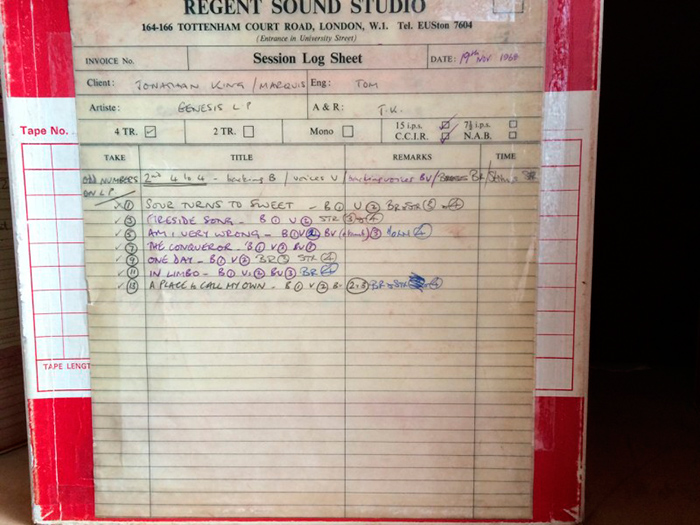 REGENT SOUND STUDIO
164-166 TOTTENHAM COURT ROAD, LONDON, W.1. Tel. EUSton 7604
(Entrance in University Street)
INVOICE No. Session Log Sheet DATE: 19th NOV 1968
Client: JONATHAN KING / MARQUIS Eng: TOM
Artiste: GENESIS LP A & R: J.K.
Tape No. 4 TR. 2 TR. Mono 15 i.p.s. 7½ i.p.s.
C.C.I.R. N.A.B.
TAKE TITLE REMARKS TIME
ODD NUMBERS 2nd 4 to 4 - backing B / voices V / backing voices BV / BR /
ON LP
1 SOUR TURNS TO SWEET - B 1 V 2 BR & STR 3 4
3 FIRESIDE SONG - B 1 V 2 STR 3 4
5 AM I VERY WRONG - B 1 V 2 BV 3 HORN 4
7 THE CONQUEROR - B 1 V 1 BV 1
9 ONE DAY - B 1 V 2 BR 3 STR 4
11 IN LIMBO - B 1 V 2 BV 3 BR 4
13 A PLACE to CALL MY OWN - B 1 V 2 2+3 BR & STR 4
TAPE LENGT